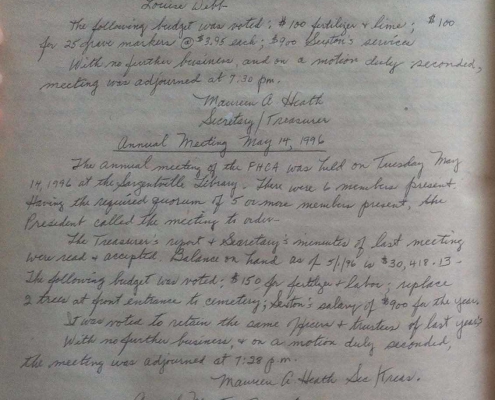 Louise Webb
The following budget was voted: $100 fertilizer & lime; $100
for 25 grave markers @ $3.95 each; $900 Sexton's services
With no further business, and on a motion duly seconded,
meeting was adjourned at 7:30 pm.
Maureen A Heath
Secretary/Treasurer
Annual Meeting May 14, 1996
The annual meeting of the PHCA was held on Tuesday May
14, 1996 at the Sargentville Library. There were 6 members present
Having the required quorum of 5 or more members present, the
President called the meeting to order.
The Treasurer's report & Secretary's minutes of last meeting
were read & accepted. Balance on hand as of 5/1/96 is $30,418.13-
The following budget was voted: $150 for fertilizer & labor; replace
2 trees at front entrance to cemetery; Sexton's salary of $900 for the year.
It was voted to retain the same Officers & trustees of last year.
With no further business, & on a motion duly seconded,
the meeting was adjourned at 7:28 p.m.
Maureen A Heath Sec/Treas.
Annual Meeting